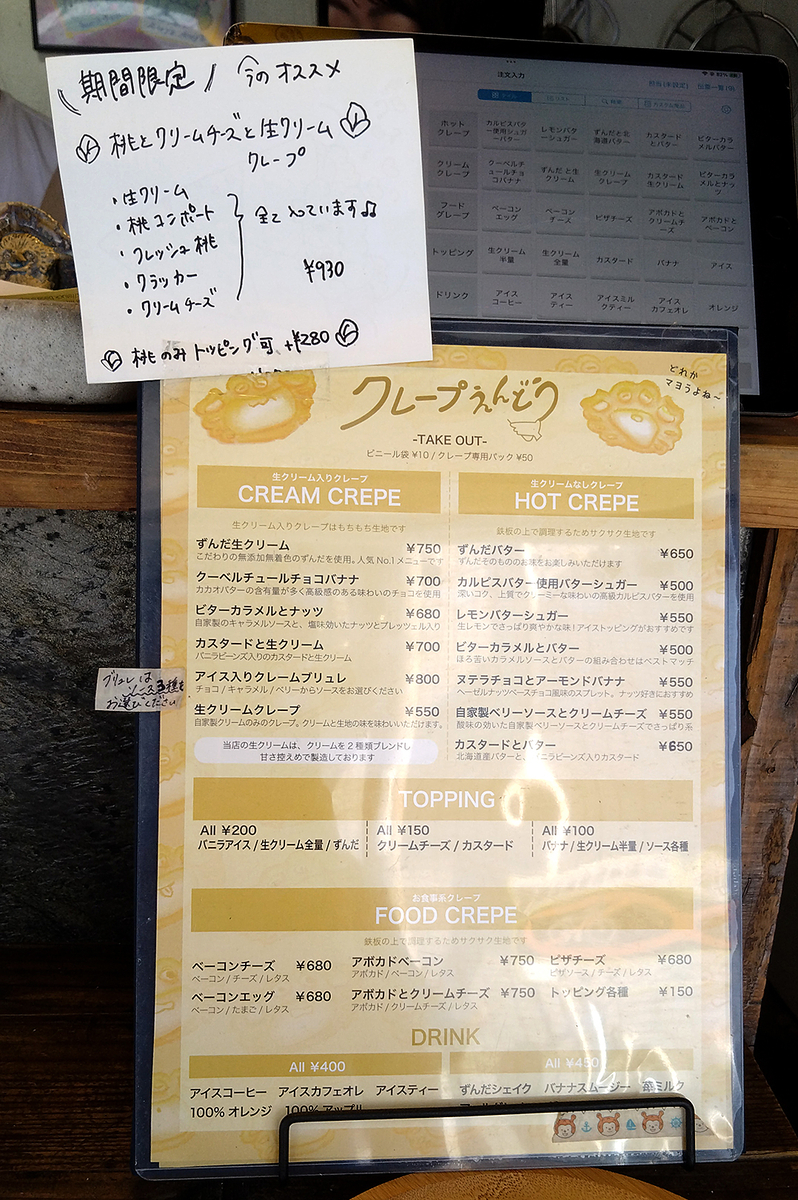 期間限定 今のオススメ
桃とクリームチーズと生クリーム
クレープ
・生クリーム
・桃コンポート
・フレッシュ桃
・クラッカー
・クリームチーズ
全て入っています♫
¥930
桃のみトッピング可 +¥280
注文入力
ホットクレープ
カルピスバター使用シュガーバター
レモンバターシュガー
ずんだと北海道バター
カスタードとバター
ビターカラメルバター
クリームクレープ
クーベルチュールチョコバナナ
ずんだと生クリーム
生クリームクレープ
カスタード生クリーム
ビターカラメルとナッツ
フードクレープ
ベーコンエッグ
ベーコンチーズ
ピザチーズ
アボカドとクリームチーズ
アボカドとベーコン
トッピング
生クリーム半量
生クリーム全量
カスタード
バナナ
アイス
ドリンク
アイスコーヒー
アイスティー
アイスミルクティー
アイスカフェオレ
オレンジ
クレープえんどう
どれか
マヨうよね〜
-TAKE OUT-
ビニール袋 ¥10 / クレープ専用パック ¥50
生クリーム入りクレープ
CREAM CREPE
生クリーム入りクレープはもちもち生地です
ずんだ生クリーム ¥750
こだわりの無添加無着色のずんだを使用。人気 No.1 メニューです
クーベルチュールチョコバナナ ¥700
カカオバターの含有量が多く高級感のある味わいのチョコを使用
ビターカラメルとナッツ ¥680
自家製のキャラメルソースと、塩味効いたナッツとプレッツェル入り
カスタードと生クリーム ¥700
バニラビーンズ入りのカスタードと生クリーム
アイス入りクレームブリュレ ¥800
チョコ / キャラメル / ベリーからソースをお選びください
生クリームクレープ ¥550
自家製クリームのみのクレープ。クリームと生地の味を味わいいただけます。
当店の生クリームは、クリームを2種類ブレンドし
甘さ控えめで製造しております
ブリュレは
ソース3種を
お選びください
生クリームなしクレープ
HOT CREPE
鉄板の上で調理するためサクサク生地です
ずんだバター ¥650
ずんだそのもののお味をお楽しみいただけます
カルピスバター使用バターシュガー ¥500
深いコク、上質でクリーミーな味わいの高級カルピスバターを使用
レモンバターシュガー ¥550
生レモンでさっぱり爽やかな味!アイストッピングがおすすめです
ビターカラメルとバター ¥500
ほろ苦いカラメルソースとバターの組み合わせはベストマッチ
ヌテラチョコとアーモンドバナナ ¥550
ヘーゼルナッツペースチョコ風味のスプレット。ナッツ好きにおすすめ
自家製ベリーソースとクリームチーズ ¥550
酸味の効いた自家製ベリーソースとクリームチーズでさっぱり系
カスタードとバター ¥650
北海道産バターと、バニラビーンズ入りカスタード
TOPPING
All ¥200
バニラアイス / 生クリーム全量 / ずんだ
All ¥150
クリームチーズ / カスタード
All ¥100
バナナ / 生クリーム半量 / ソース各種
お食事系クレープ
FOOD CREPE
鉄板の上で調理するためサクサク生地です
ベーコンチーズ ¥680
ベーコン / チーズ / レタス
アボカドベーコン ¥750
アボカド / ベーコン / レタス
ピザチーズ ¥680
ピザソース / チーズ / レタス
ベーコンエッグ ¥680
ベーコン / たまご / レタス
アボカドとクリームチーズ ¥750
アボカド / クリームチーズ / レタス
トッピング各種 ¥150
DRINK
All ¥400
アイスコーヒー アイスカフェオレ アイスティー
100% オレンジ 100% アップル
All ¥450
ずんだシェイク バナナスムージー 苺ミルク